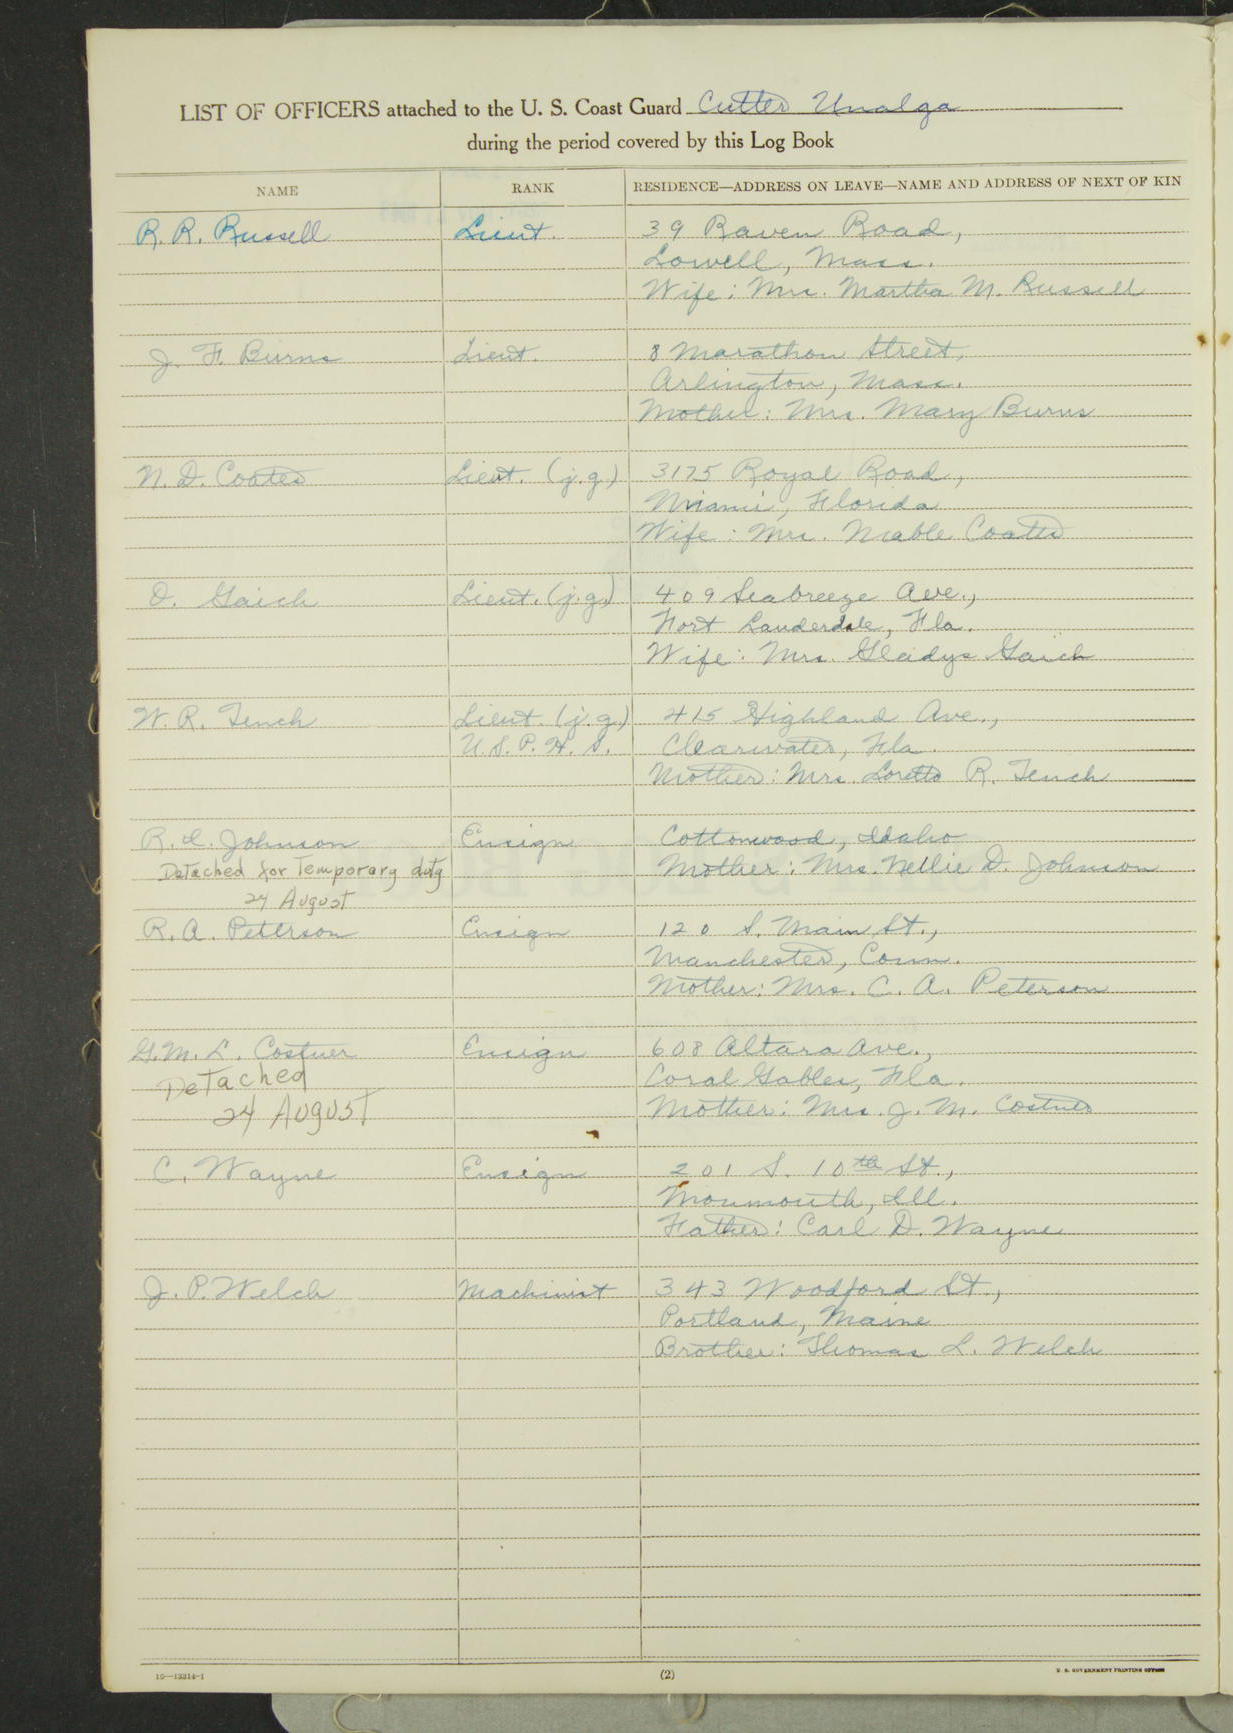 LIST OF OFFICERS attached to the U. S. Coast Guard Cutter Unalga
during the period covered by this Log Book
NAME RANK RESIDENCE—ADDRESS ON LEAVE—NAME AND ADDRESS OF NEXT OF KIN
R. R. Russell Lieut. 39 Raven Road,
Lowell, Mass.
Wife: Mrs. Martha M. Russell
J. F. Burns Lieut. 8 Marathon Street,
Arlington, Mass.
Mother: Mrs. Mary Burns
N. D. Coates Lieut. (j.g.) 3175 Royal Road,
Miami, Florida
Wife: Mrs. Mable Coates
O. Gaich Lieut. (j.g.) 409 Seabreeze Ave.,
Fort Lauderdale, Fla.
Wife: Mrs. Gladys Gaich
W. R. Tench Lieut. (j.g.) 415 Highland Ave.,
U. S. P. H. S. Clearwater, Fla.
Mother: Mrs. Loretto R. Tench
R. L. Johnson Ensign Cottonwood, Idaho
Detached for Temporary duty Mother: Mrs. Nellie D. Johnson
24 August
R. A. Peterson Ensign 120 S. Main St.,
Manchester, Conn.
Mother: Mrs. C. A. Peterson
G. M. L. Costner Ensign 608 Altara Ave.,
Detached Coral Gables, Fla.
24 August Mother: Mrs. J. M. Costner
C. Wayne Ensign 201 S. 10th St.,
Monmouth, Ill.
Father: Carl D. Wayne
J. P. Welch Machinist 343 Woodford St.,
Portland, Maine
Brother: Thomas L. Welch
16—13314-1 (2) U. S. GOVERNMENT PRINTING OFFICE